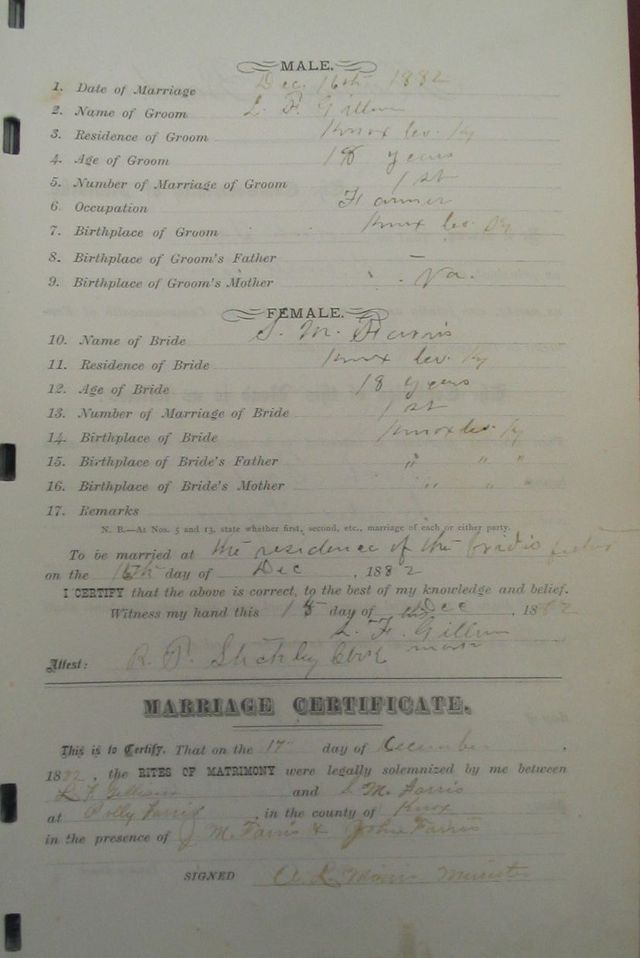 MALE.
1. Date of Marriage Dec. 16th 1882
2. Name of Groom L. F. Gillum
3. Residence of Groom Knox Co. Ky
4. Age of Groom 18 years
5. Number of Marriage of Groom 1st
6. Occupation Farmer
7. Birthplace of Groom Knox Co. Ky
8. Birthplace of Groom's Father
9. Birthplace of Groom's Mother " Va.
FEMALE.
10. Name of Bride S. M. Farris
11. Residence of Bride Knox Co. Ky
12. Age of Bride 18 years
13. Number of Marriage of Bride 1st
14. Birthplace of Bride Knox Co. Ky
15. Birthplace of Bride's Father " " "
16. Birthplace of Bride's Mother " " "
17. Remarks
N. B.—At Nos. 5 and 13, state whether first, second, etc., marriage of each or either party.
To be married at the residence of the brides father
on the 16th day of Dec , 1882
I CERTIFY that the above is correct, to the best of my knowledge and belief.
Witness my hand this 15 day of Dec , 1882
L. F. Gillum
Attest: R. P. Clerk mark
MARRIAGE CERTIFICATE.
This is to Certify, That on the 17 day of December ,
1882, the RITES OF MATRIMONY were legally solemnized by me between
L F Gillum and S M Farris
at Polly Farris , in the county of Knox
in the presence of J M. Farris & John Farris
SIGNED Minister